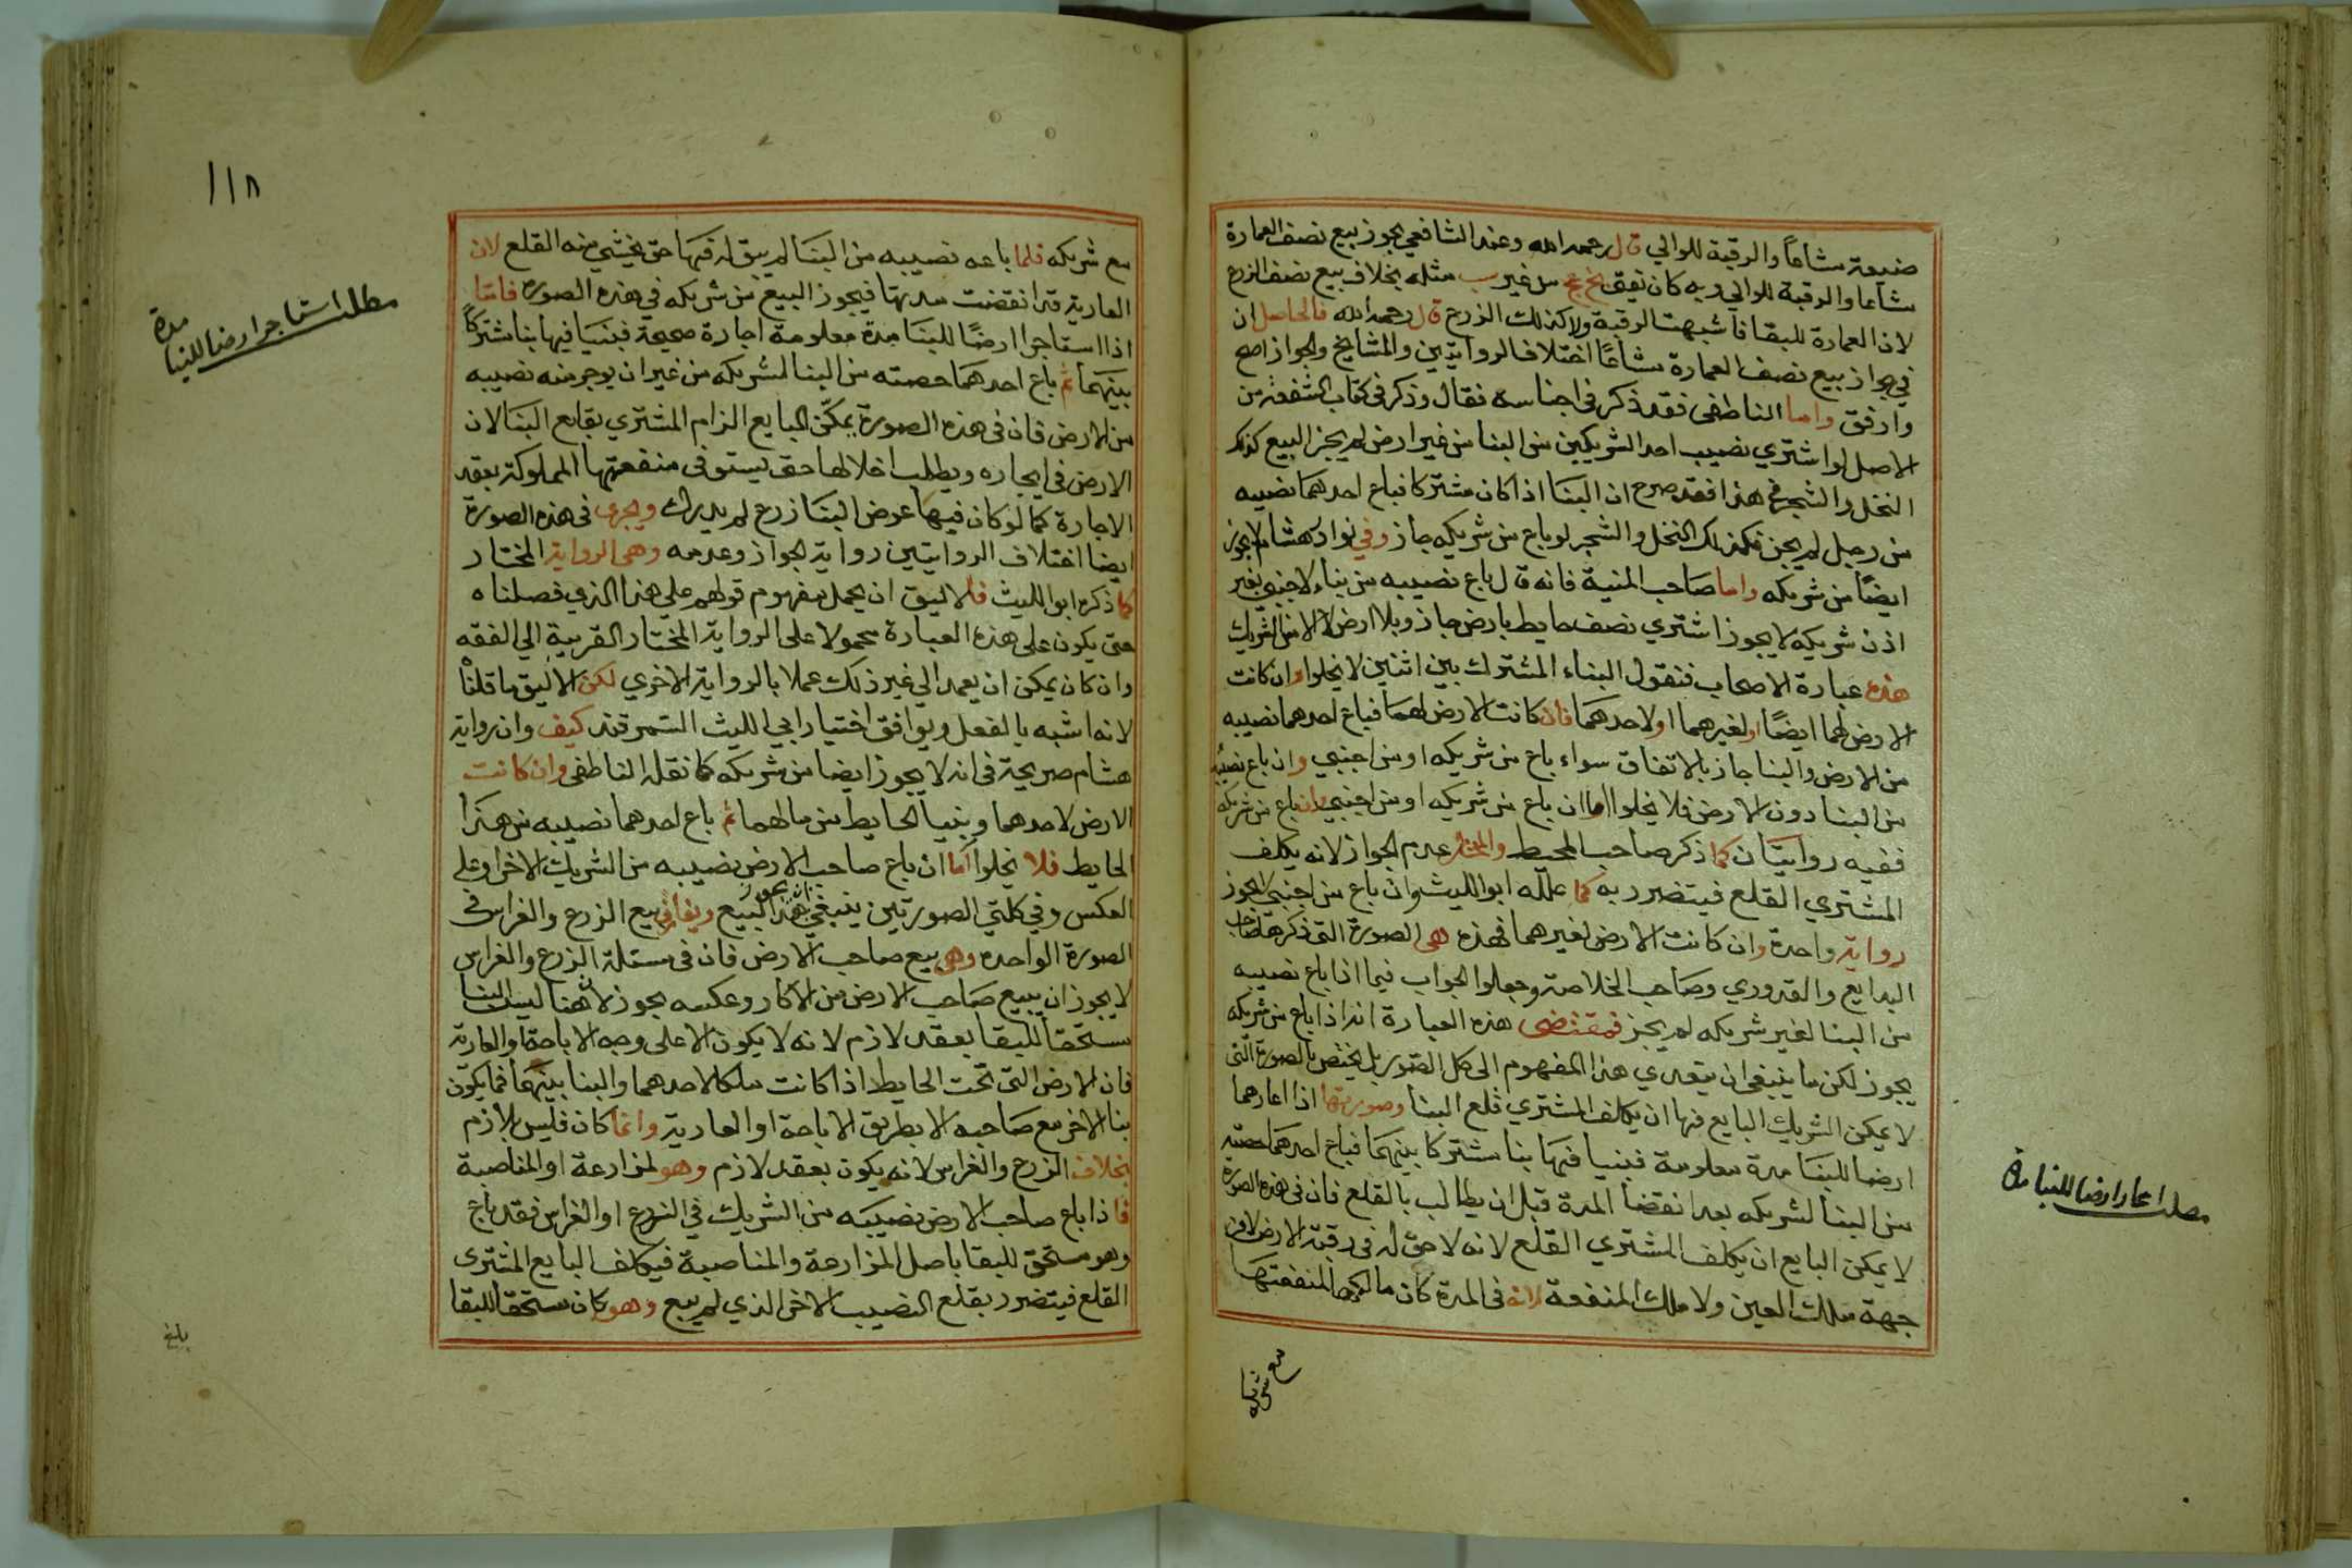 ضيعة مشاعاً والرقبة للوالي قال رحمه الله وعند الشافعي يجوز بيع نصف العمارة
مشاعا والرقبة للوالي وبه كان يفتي من غير مثله بخلاف بيع نصف الزرع
لان العمارة للبقا فاشبهت الرقبة ولا كذلك الزرع قال رحمه الله فالحاصل ان
في جواز بيع نصف العمارة مشاعًا اختلاف الروايتين والمشايخ والجواز اصح
وارفق واما الناطفى فقد ذكر فى اجناسه فقال وذكر فى كتاب الشفعة من
الاصل لو اشتري نصيب احد الشريكين من البنا من غير ارض لم يجز البيع كذلك
النخل والشجر فى هذا فقد صرح ان البنا اذا كان مشتركا فباع احدهما نصيبه
من رجل لم يجز فكذلك النخل والشجر لو باع من شريكه جاز وفي نوادر هشام لا يجوز
ايضًا من شريكه واما صاحب المنية فانه قال باع نصيبه من بناء لاجنبي بغير
اذن شريكه لا يجوز اشتري نصف حايط بارض جاز وبلا ارض لا الا من الشريك
هذه عبارة الاصحاب فنقول البناء المشترك بين اثنين لا يخلوا وان كانت
الارض لهما ايضًا او لغيرهما او لاحدهما فان كانت الارض لهما فباع احدهما نصيبه
من الارض والبنا جاز بالاتفاق سواء باع من شريكه او من اجنبي وان باع نصيبه
من البنا دون الارض فلا يخلوا اما ان باع من شريكه او من اجنبي فان باع من شريكه
ففيه روايتان كما ذكر صاحب المحيط والمختار عدم الجواز لانه يكلف
المشتري القلع فيتضرر به كما علله ابو الليث وان باع من اجنبي لا يجوز
رواية واحدة وان كانت الارض لغيرهما فهذه هى الصورة التى ذكرها صاحب
البدايع والقدوري وصاحب الخلاصة وجعلوا الجواب فيما اذا باع نصيبه
من البنا لغير شريكه لم يجز فمقتضى هذه العبارة انه اذا باع من شريكه
يجوز لكن ما ينبغي ان يتعدي هذا المفهوم الى كل الصور بل يختص بالصورة التى
لا يمكن الشريك البايع فيها ان يكلف المشتري قلع البنا وصورتها اذا اعارهما
ارضا للبنا مدة معلومة فبنيا فيها بنا مشتركا بينهما فباع احدهما حصته
من البنا لشريكه بعد انقضا المدة قبل ان يطالب بالقلع فان فى هذه الصورة
لا يمكن البايع ان يكلف المشتري القلع لانه لا حق له فى رقبة الارض لا من
جهة ملك العين ولا ملك المنفعة لانه فى المدة كان مالكها لمنفعتها
مع شريكه
مطلب اعار ارضا للبنا مدة
١١٨
مع شريكه فلما باعه نصيبه من البنا لم يبق له فيها حق يخشي منه القلع لان
العارية قد انقضت مدتها فيجوز البيع من شريكه في هذه الصورة فاما
اذا استاجرا ارضًا للبنا مدة معلومة اجارة صحيحة فبنيا فيها بنا مشتركاً
بينهما ثم باع احدهما حصته من البنا لشريكه من غير ان يوجر منه نصيبه
من الارض فان فى هذه الصورة يمكن البايع الزام المشتري بقلع البنا لان
الارض فى ايجاره ويطلب اخلالها حتى يستوفى منفعتها المملوكة بعقد
الاجارة كما لو كان فيها عوض البنا زرع لم يدرك ويجرى فى هذه الصورة
ايضا اختلاف الروايتين رواية الجواز وعدمه وهى الرواية المختار
كما ذكره ابو الليث فلا ليق ان يحمل مفهوم قولهم على هذا الذى فصلناه
حتى يكون على هذه العبارة محمولا على الرواية المختار القريبة الي الفقه
وان كان يمكن ان يعمد الي غير ذلك عملا بالرواية الاخري لكن الاليق ما قلنا
لانه اشبه بالفعل ويوافق اختيار ابي الليث السمرقندى كيف وان رواية
هشام صريحة فى انه لا يجوز ايضا من شريكه كما نقله الناطفى وان كانت
الارض لاحدهما وبنيا الحايط من مالهما ثم باع احدهما نصيبه من هذا
الحايط فلا يخلوا اما ان باع صاحب الارض نصيبه من الشريك الاخر او على
العكس وفي كلتي الصورتين ينبغي ان يجوز هذا البيع ويفارق بيع الزرع والغراس فى
الصورة الواحده وهى بيع صاحب الارض فان فى مسئلة الزرع والغراس
لا يجوز ان يبيع صاحب الارض من الاكار وعكسه يجوز لان هنا ليس البنا
مستحقا للبقا بعقد لازم لانه لا يكون الا على وجه الاباحة او العارية
فان الارض التى تحت الحايط اذا كانت ملكا لاحدهما والبنا بينهما فما يكون
بنا الاخر مع صاحبه الا بطريق الاباحة او العارية وانما كان فليس بلازم
بخلاف الزرع والغراس لانه يكون بعقد لازم وهو المزارعة او المناصبة
فاذا باع صاحب الارض نصيبه من الشريك في الزرع او الغراس فقد باع
وهو مستحق للبقا باصل المزارعة والمناصبة فيكلف البايع المشترى
القلع فيتضرر بقلع النصيب الاخر الذي لم يبع وهو كان مستحقا للبقا
مطلب استاجر ارضا للبنا مدة
بلغ